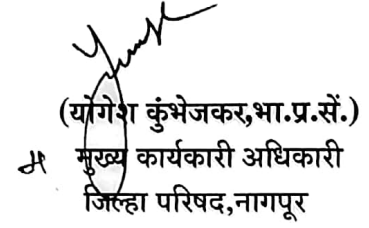 (योगेश कुंभेजकर,भा.प्र.सें.)
मुख्य कार्यकारी अधिकारी
जिल्हा परिषद,नागपूर